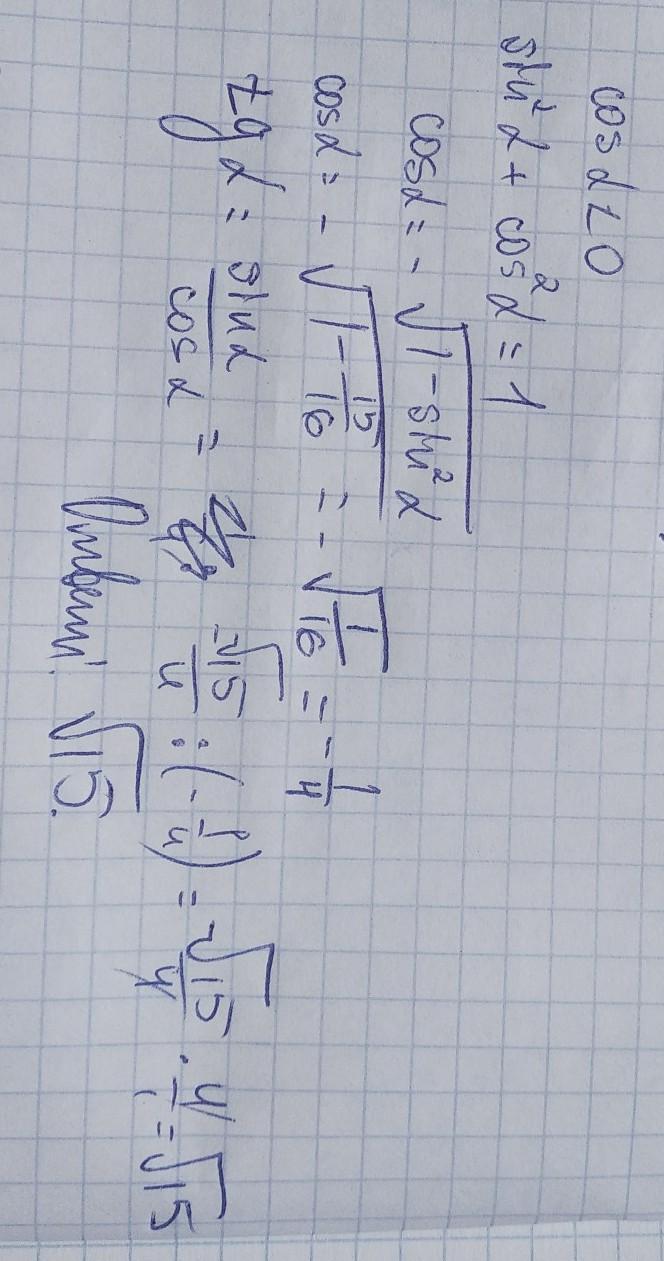 cos α < 0
sin² α + cos² α = 1
cos α = - √(1 - sin² α)
cos α = - √(1 - 15/16) = - √(1/16) = - 1/4
tg α = sin α / cos α = -√15/4 : (- 1/4) = √15/4 · 4/1 = √15
√15.